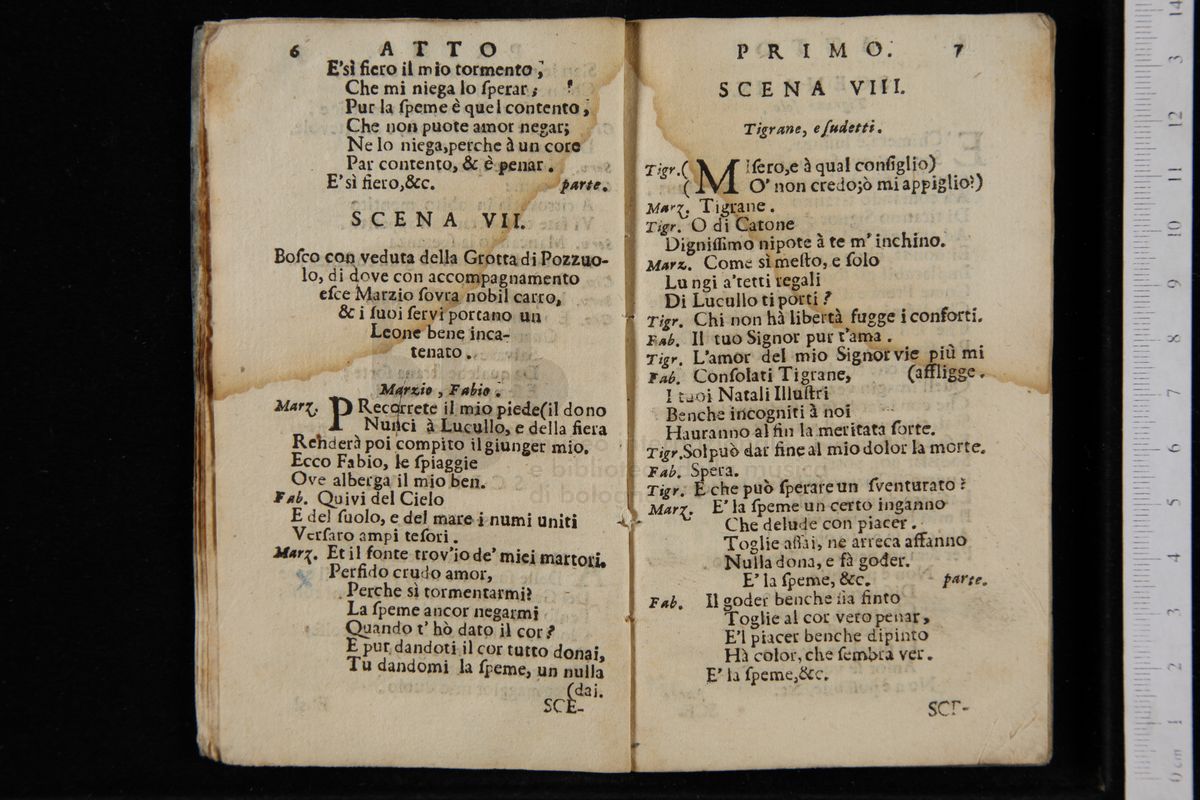 6 ATTO
E'sì fiero il mio tormento,
Che mi niega lo ſperar;
Pur la ſpeme è quel contento,
Che non puote amor negar;
Ne lo niega,perche à un core
Par contento, & è penar.
E'sì fiero,&c. parte.
SCENA VII.
Boſco con veduta della Grotta di Pozzuo-
lo, di dove con accompagnamento
eſce Marzio ſovra nobil carro,
& i ſuoi ſervi portano un
Leone bene inca-
tenato.
Marzio, Fabio.
Marz. PRecorrete il mio piede(il dono
Nunci à Lucullo, e della fiera
Renderà poi compito il giunger mio.
Ecco Fabio, le ſpiaggie
Ove alberga il mio ben.
Fab. Quivi del Cielo
E del ſuolo, e del mare i numi uniti
Verſaro ampi teſori.
Marz. Et il fonte trov'io de' miei martori.
Perfido crudo amor,
Perche sì tormentarmi?
La ſpeme ancor negarmi
Quando t' hò dato il cor?
E pur dandoti il cor tutto donai,
Tu dandomi la ſpeme, un nulla
(dai.
SCE-
PRIMO. 7
SCENA VIII.
Tigrane, e ſudetti.
Tigr.( MIſero,e à qual conſiglio)
( O' non credo;ò mi appiglio?)
Marz. Tigrane.
Tigr. O di Catone
Digniſſimo nipote à te m' inchino.
Marz. Come sì meſto, e ſolo
Lungi a'tetti regali
Di Lucullo ti porti?
Tigr. Chi non hà libertà fugge i conforti.
Fab. Il tuo Signor pur t'ama.
Tigr. L'amor del mio Signor vie più mi
Fab. Conſolati Tigrane, (affligge.
I tuoi Natali Illuſtri
Benche incogniti à noi
Hauranno al fin la meritata ſorte.
Tigr.Sol può dar fine al mio dolor la morte.
Fab. Spera.
Tigr. E che può ſperare un ſventurato?
Marz. E' la ſpeme un certo inganno
Che delude con piacer.
Toglie aſſai, ne arreca affanno
Nulla dona, e fà goder.
E' la ſpeme, &c. parte.
Fab. Il goder benche ſia finto
Toglie al cor vero penar,
E'l piacer benche dipinto
Hà color, che ſembra ver.
E' la ſpeme,&c.
SCE-